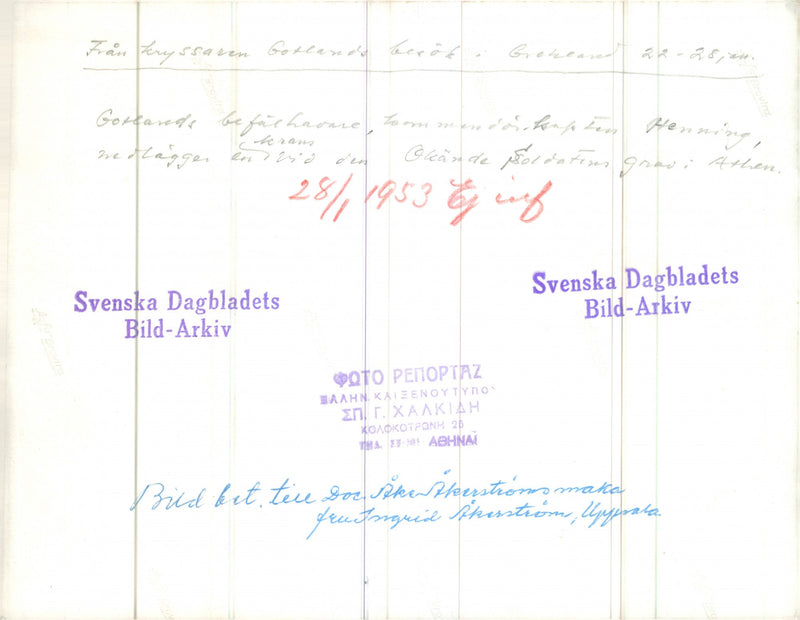 Från kryssaren Gotlands besök i Grekland 22-28 jan.
Gotlands befälhavare, kommendörkapten Henning,
krans
nedlägger en vid den Okände Soldatens grav i Athen.
28/1 1953 Ej inf
Svenska Dagbladets
Bild-Arkiv
Svenska Dagbladets
Bild-Arkiv
ΦΩΤΟ ΡΕΠΟΡΤΑΖ
ΕΛΛΗΝ. ΚΑΙ ΞΕΝΟΥ ΤΥΠΟΥ
ΣΠ. Γ. ΧΑΛΚΙΔΗ
ΚΟΛΟΚΟΤΡΩΝΗ 25
ΤΗΛ. ΑΘΗΝΑΙ
Bild bet. till Doc. Åke Åkerströms maka
fru Ingrid Åkerström, Uppsala.